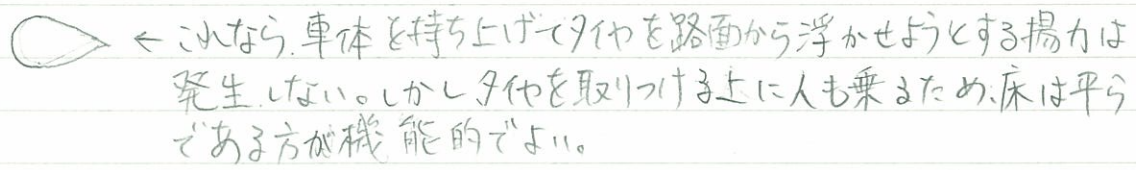 ←これなら、車体を持ち上げてタイヤを路面から浮かせようとする揚力は
発生しない。しかしタイヤを取りつける上に人も乗るため、床は平ら
である方が機能的でよい。